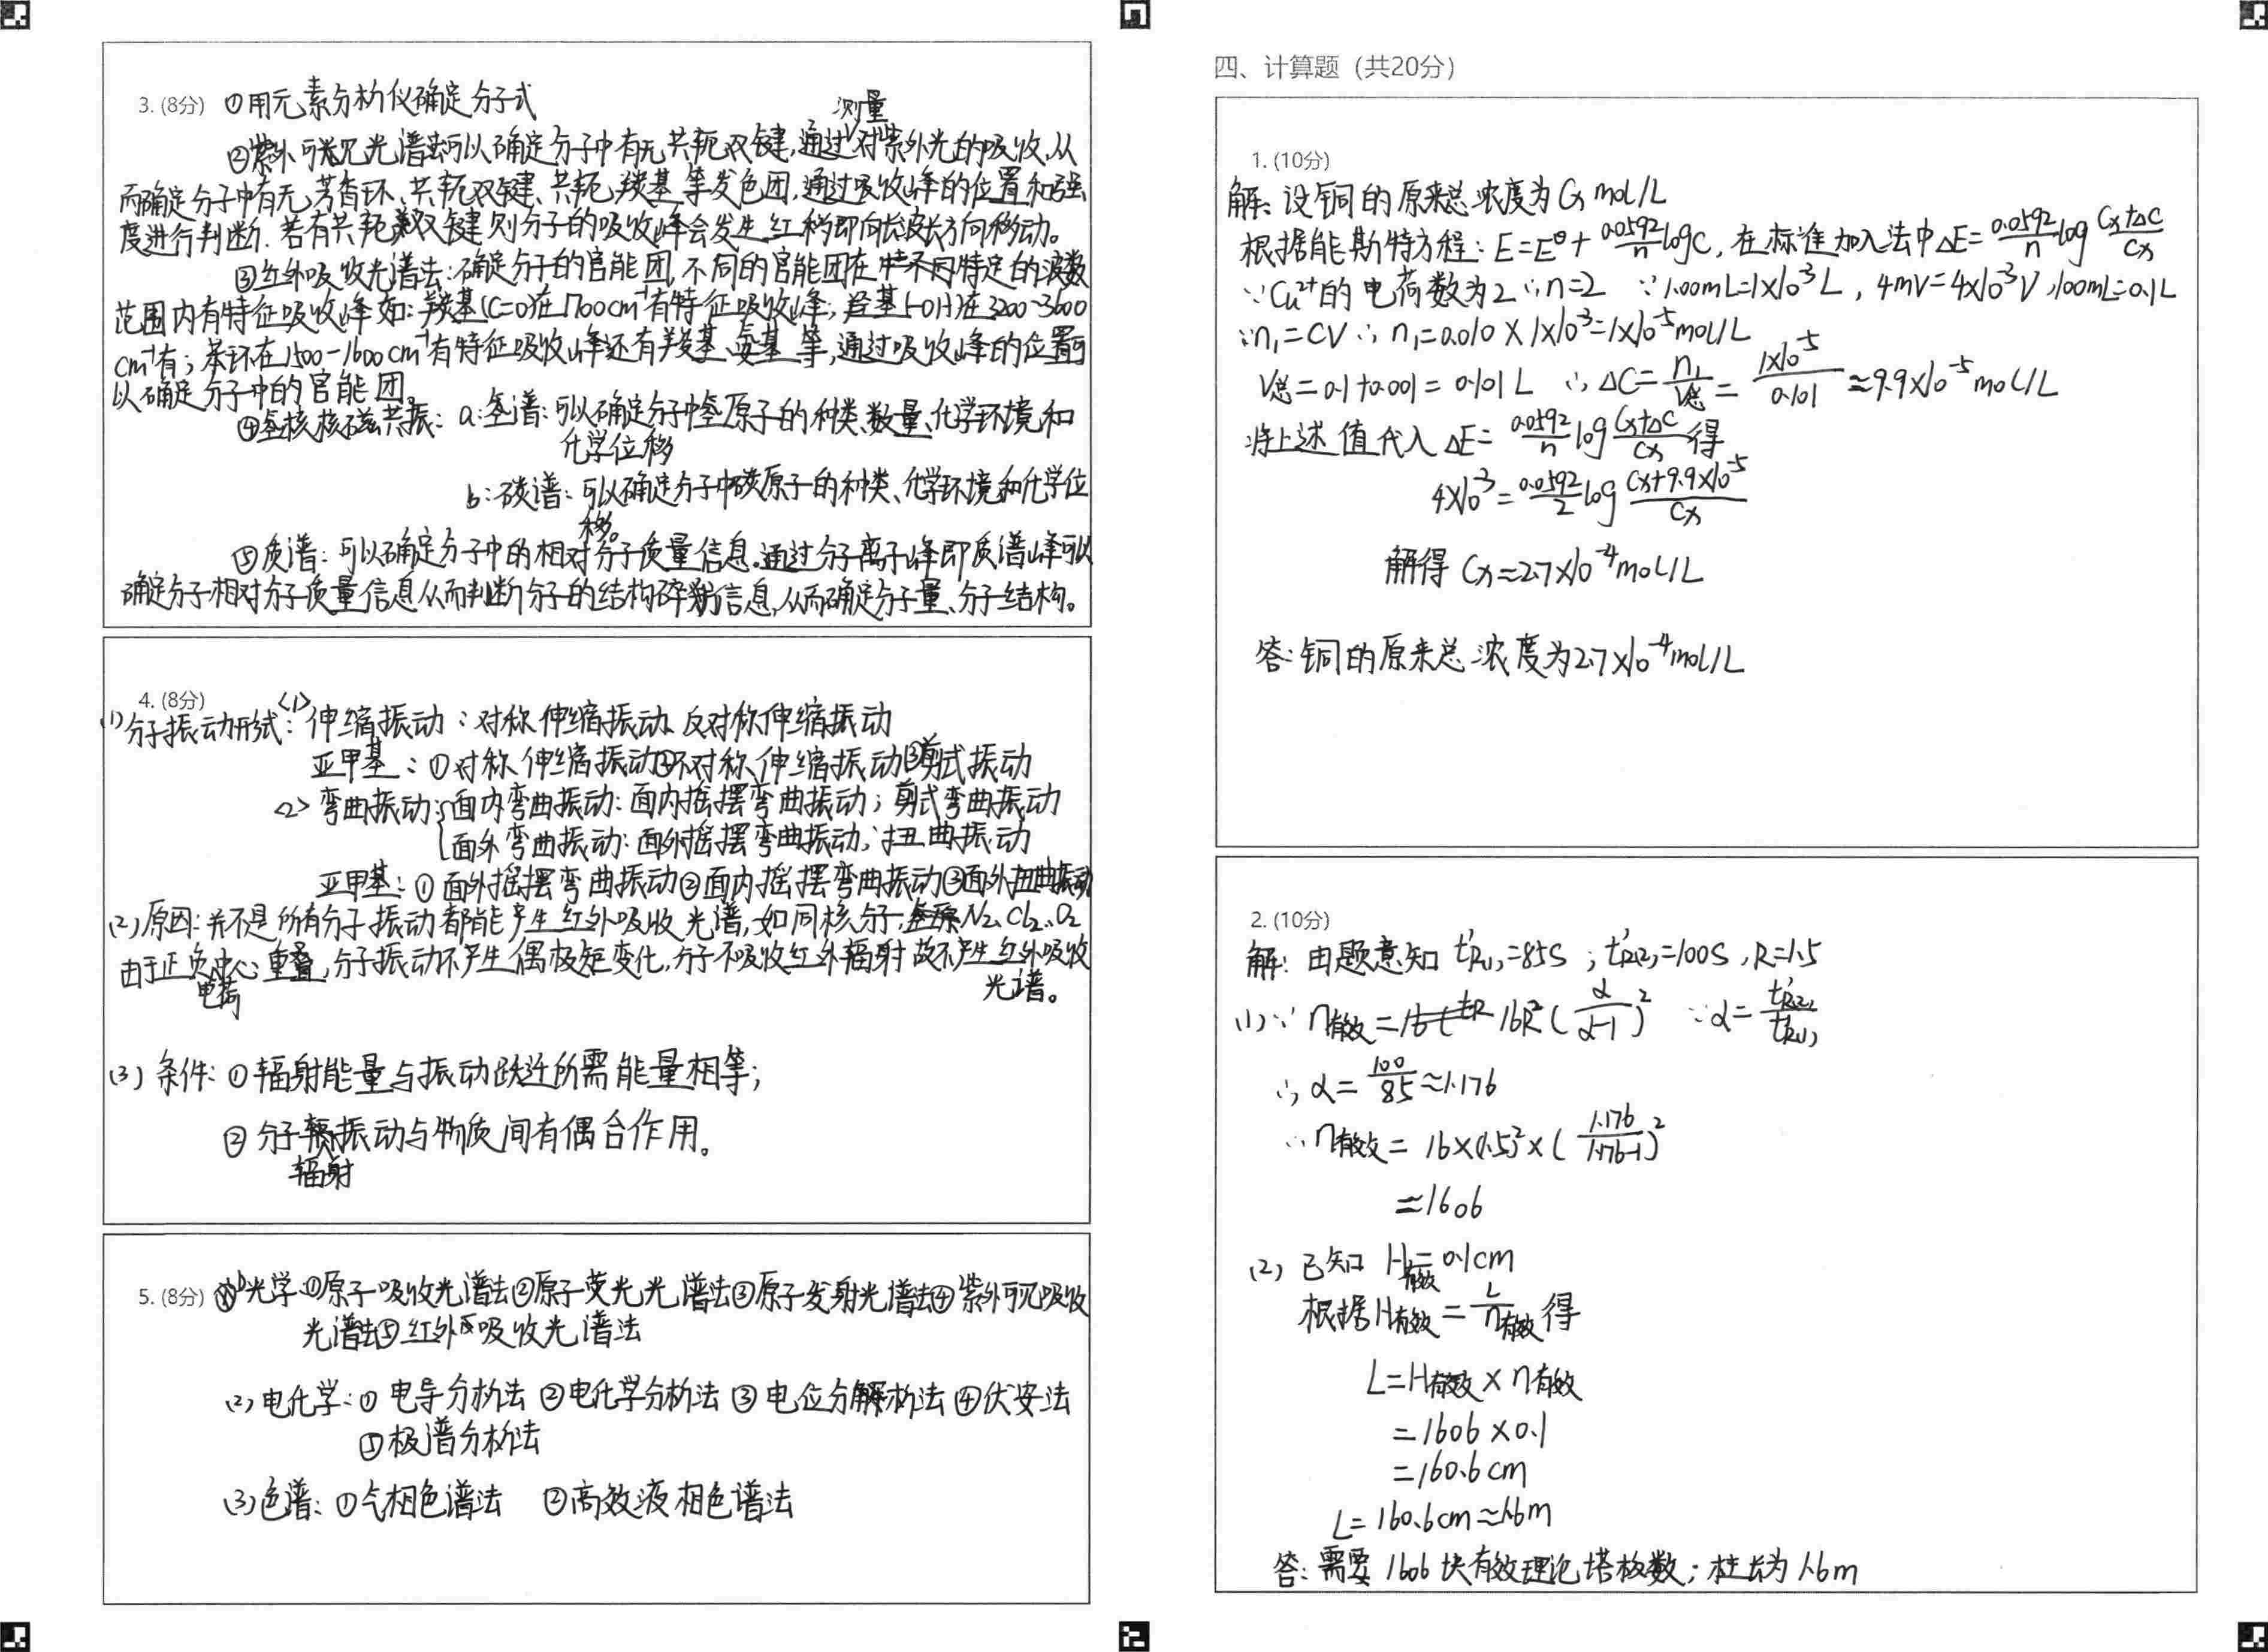 3. (8分) ①用元素分析仪确定分子式
测量
②紫外可见光谱法可以确定分子中有无共轭双键,通过对紫外光的吸收,从
而确定分子中有无芳香环、共轭双键、共轭羰基等发色团,通过吸收峰的位置和强
度进行判断.若有共轭双键则分子的吸收峰会发生红移即向长波长方向移动。
③红外吸收光谱法:确定分子的官能团,不同的官能团在特定的波数
范围内有特征吸收峰如:羰基(C=O)在1700cm⁻¹有特征吸收峰;羟基(-OH)在3200-3600
cm⁻¹有;苯环在1500-1600cm⁻¹有特征吸收峰还有羧基、氨基等,通过吸收峰的位置可
以确定分子中的官能团。
④氢核核磁共振: a:氢谱:可以确定分子中氢原子的种类、数量、化学环境和
化学位移
b:碳谱:可以确定分子中碳原子的种类、化学环境和化学位
移。
⑤质谱:可以确定分子中的相对分子质量信息.通过分子离子峰即质谱峰可以
确定分子相对分子质量信息从而判断分子的结构碎片信息,从而确定分子量、分子结构。
4. (8分)
(1)分子振动形式:<1>伸缩振动:对称伸缩振动、反对称伸缩振动
亚甲基:①对称伸缩振动②不对称伸缩振动③剪式振动
<2>弯曲振动:面内弯曲振动:面内摇摆弯曲振动;剪式弯曲振动
面外弯曲振动:面外摇摆弯曲振动;扭曲振动
亚甲基:①面外摇摆弯曲振动②面内摇摆弯曲振动③面外扭曲振动
(2)原因:并不是所有分子振动都能产生红外吸收光谱,如同核分子N₂、Cl₂、O₂
由于正负电荷中心重叠,分子振动不产生偶极矩变化,分子不吸收红外辐射故不产生红外吸收
光谱。
(3)条件:①辐射能量与振动跃迁所需能量相等;
②分子辐射振动与物质间有偶合作用。
5. (8分) (1)光学:①原子吸收光谱法②原子荧光光谱法③原子发射光谱法④紫外可见吸收
光谱法⑤红外吸收光谱法
(2)电化学:①电导分析法②电化学分析法③电位分析法④伏安法
⑤极谱分析法
(3)色谱:①气相色谱法 ②高效液相色谱法
四、计算题(共20分)
1. (10分)
解:设铜的原来总浓度为Cx mol/L
根据能斯特方程:E=E⁰+0.0592/n logC,在标准加入法中ΔE=0.0592/n log (Cx+ΔC)/Cx
∵Cu²⁺的电荷数为2∴n=2 ∵1.00mL=1×10⁻³L,4mV=4×10⁻³V,100mL=0.1L
∵n₁=CV∴n₁=0.010×1×10⁻³=1×10⁻⁵mol/L
V总=0.1+0.001=0.101L ∴ΔC=n₁/V总=1×10⁻⁵/0.101≈9.9×10⁻⁵mol/L
将上述值代入ΔE=0.0592/n log (Cx+ΔC)/Cx得
4×10⁻³=0.0592/2 log (Cx+9.9×10⁻⁵)/Cx
解得Cx≈2.7×10⁻⁴mol/L
答:铜的原来总浓度为2.7×10⁻⁴mol/L
2. (10分)
解:由题意知t'R(1)=85S;t'R(2)=100S,R=1.5
(1)∵n有效=16R²(α/(α-1))² ∵α=t'R(2)/t'R(1)
∴α=100/85≈1.176
∴n有效=16×(1.5)²×(1.176/(1.176-1))²
≈1606
(2)已知H有效=0.1cm
根据H有效=L/n有效得
L=H有效×n有效
=1606×0.1
=160.6cm
L=160.6cm≈1.6m
答:需要1606块有效理论塔板数;柱长为1.6m